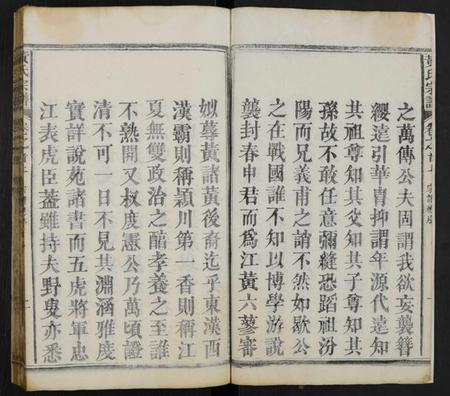 黃氏宗譜
之萬傳公夫固謂我欲妄襲簪
纓遠引華胄抑謂年源代遠知
其祖尊知其父知其子尊知其
孫故不敢任意彌縫恐蹈祖汾
陽而兄義甫之誚不然如歇公
之在戰國誰不知以博學游說
襲封春申君而爲江黃六蓼審
姒蓼黃諸黃後裔迄乎東漢西
漢霸則稱潁川第一香則稱江
夏無雙政治之醋孝養之至誰
不熟聞又叔度憲公乃萬頃證
清不可一日不見其淵涵雅度
實詳說苑諸書而五虎將軍忠
江表虎臣蓋雖持夫野叟亦悉
黃氏宗譜